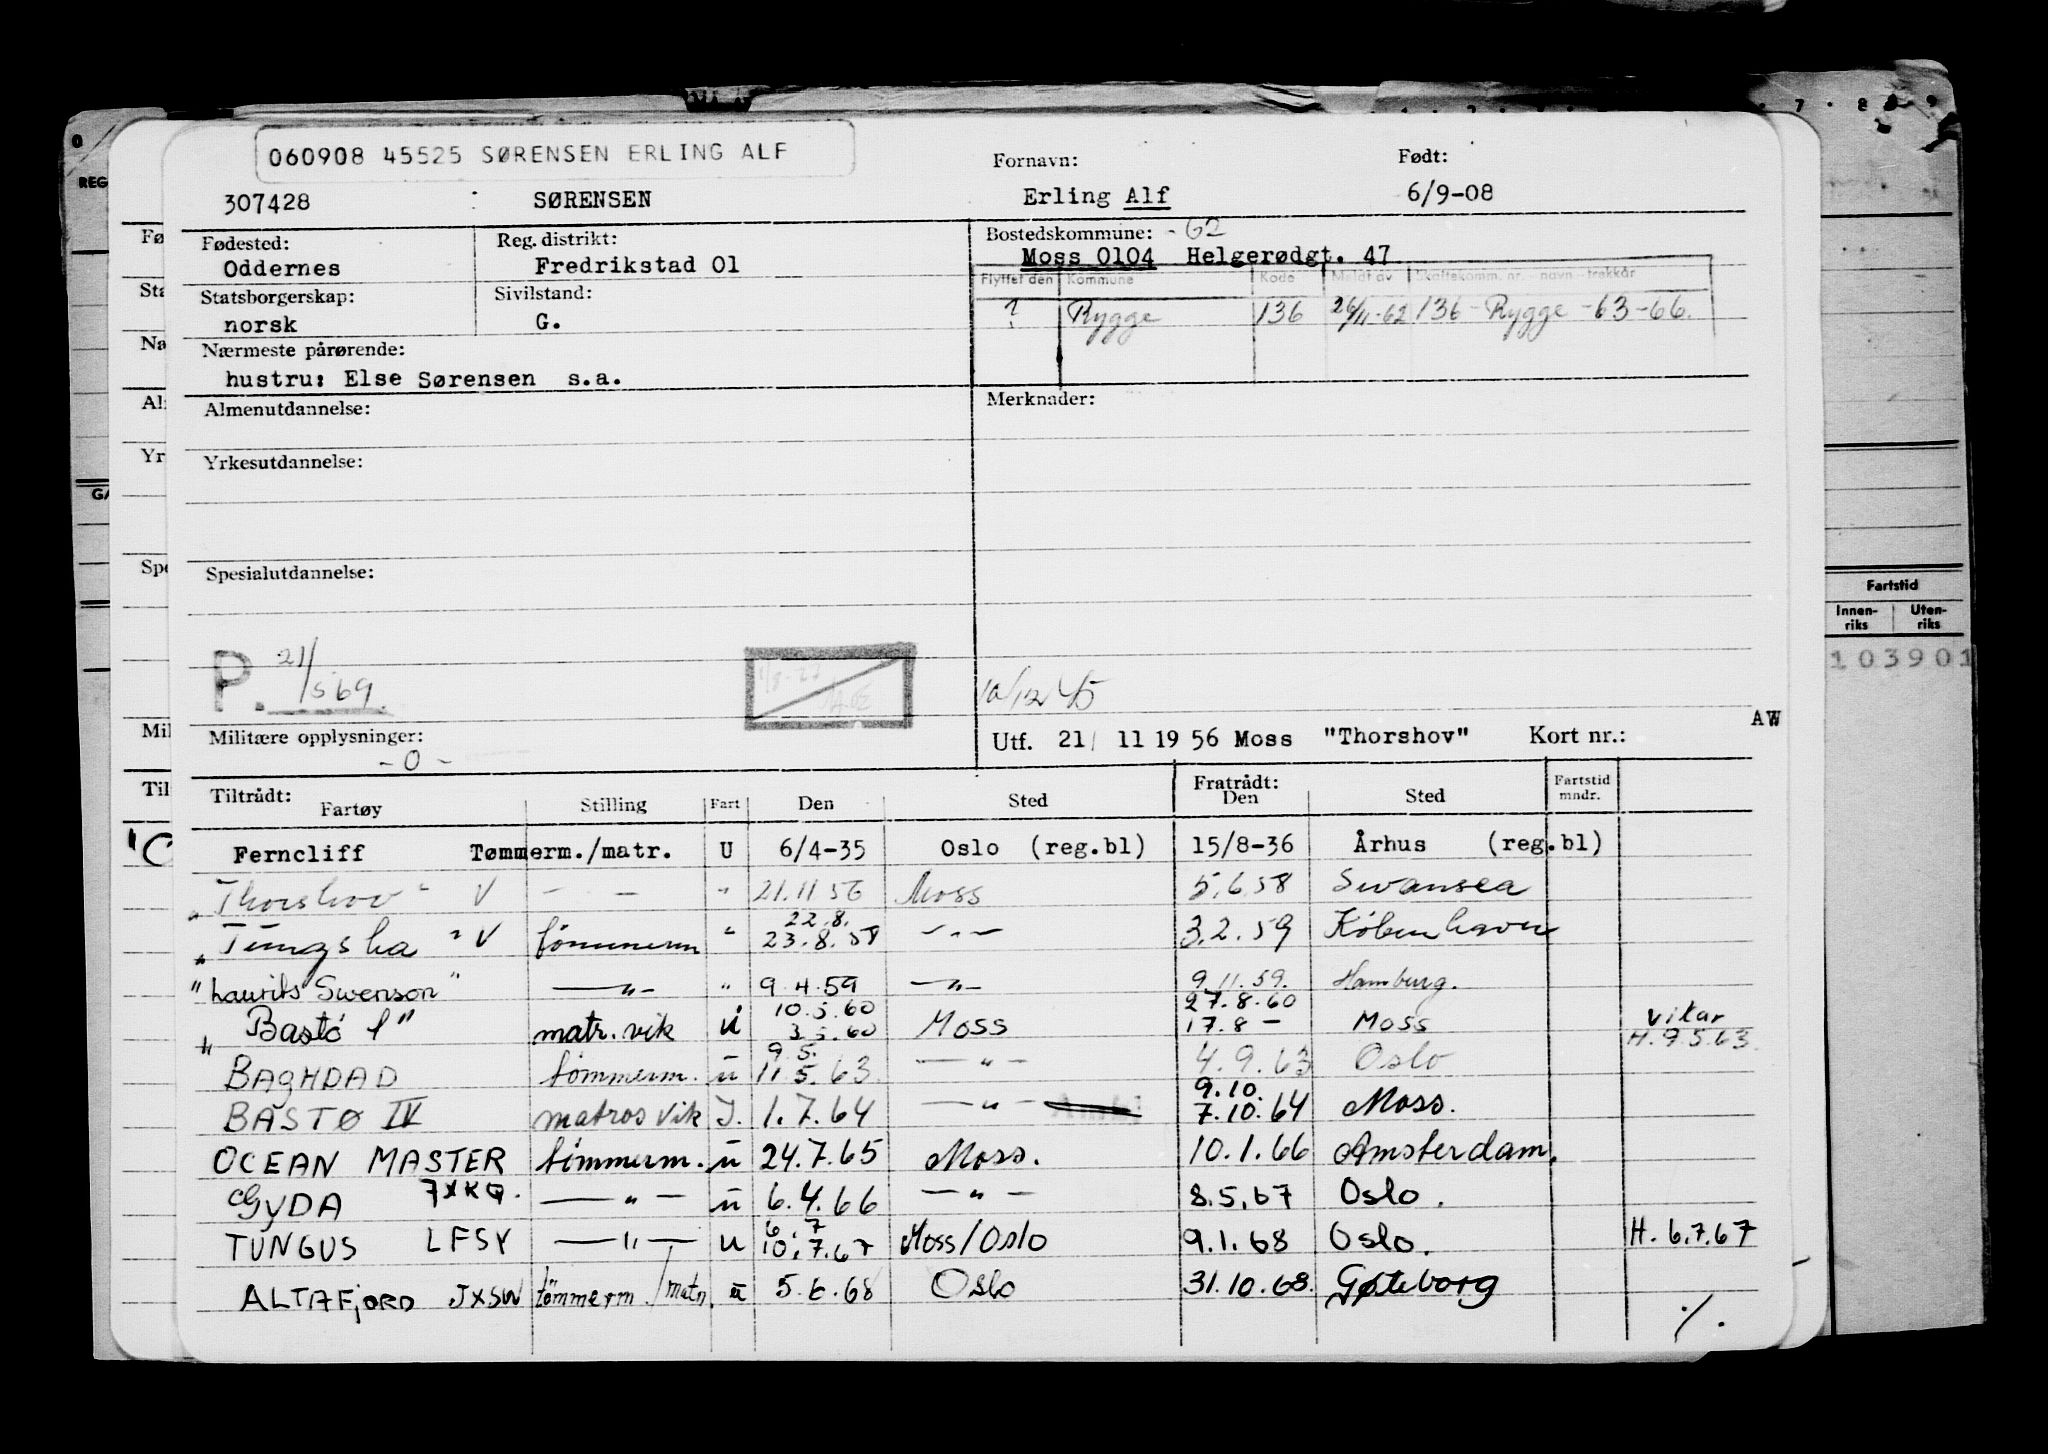 060908 45525 SØRENSEN ERLING ALF
Fornavn: Født:
307428 SØRENSEN Erling Alf 6/9-08
Fødested: Reg. distrikt: Bostedskommune: -62
Oddernes Fredrikstad 01 Moss 0104 Helgerødgt. 47
Flyttet den Kommune Kode Meldt av Skattekomm. nr. - navn - trekkår
Statsborgerskap: Sivilstand:
norsk G.
? Rygge 136 26/11-62 136 - Rygge -63-66.
Nærmeste pårørende:
hustru: Else Sørensen s.a.
Almenutdannelse: Merknader:
Yrkesutdannelse:
Spesialutdannelse:
P. 21/5 69.
10/12 45
AW
Militære opplysninger: Utf. 21/ 11 19 56 Moss "Thorshov" Kort nr.:
- 0 -
Tiltrådt: Fratrådt: Fartstid
Fartøy Stilling Fart Den Sted Den Sted mndr.
Ferncliff Tømmerm./matr. U 6/4-35 Oslo (reg.bl) 15/8-36 Århus (reg.bl)
"Thorshov" V — — " 21.11 56 Moss 5.6.58 Swansea
22.8.
"Tungsha" V tømmerm " 23.8.58 —"— 3.2.59 København
"Laurits Swenson" —"— " 9.4.59 —"— 9.11.59. Hamburg.
10.5.60 27.8.60
"Bastö I" matr. vik ü 3.5.60 Moss 17.8 — Moss vikar
9.5. H. 9.5.63
BAGHDAD tømmerm. ü 11.5.63. —"— 4.9.63 Oslo
9.10.
BASTØ IV matros vik I. 1.7.64 —"— 7.10.64 Moss.
OCEAN MASTER tømmerm. ü 24.7.65 Moss. 10.1.66 Amsterdam.
GYDA 7XKQ. —"— ü 6.4.66 —"— 8.5.67 Oslo.
6. 7
TUNGUS LFSY —"— u 10.7.67 Moss/Oslo 9.1.68 Oslo. H. 6.7.67
ALTAFJORD JXSW tømmerm./matr. ü 5.6.68 Oslo 31.10.68. Gøteborg
./.
Fartstid
Innen-riks Uten-riks
103901